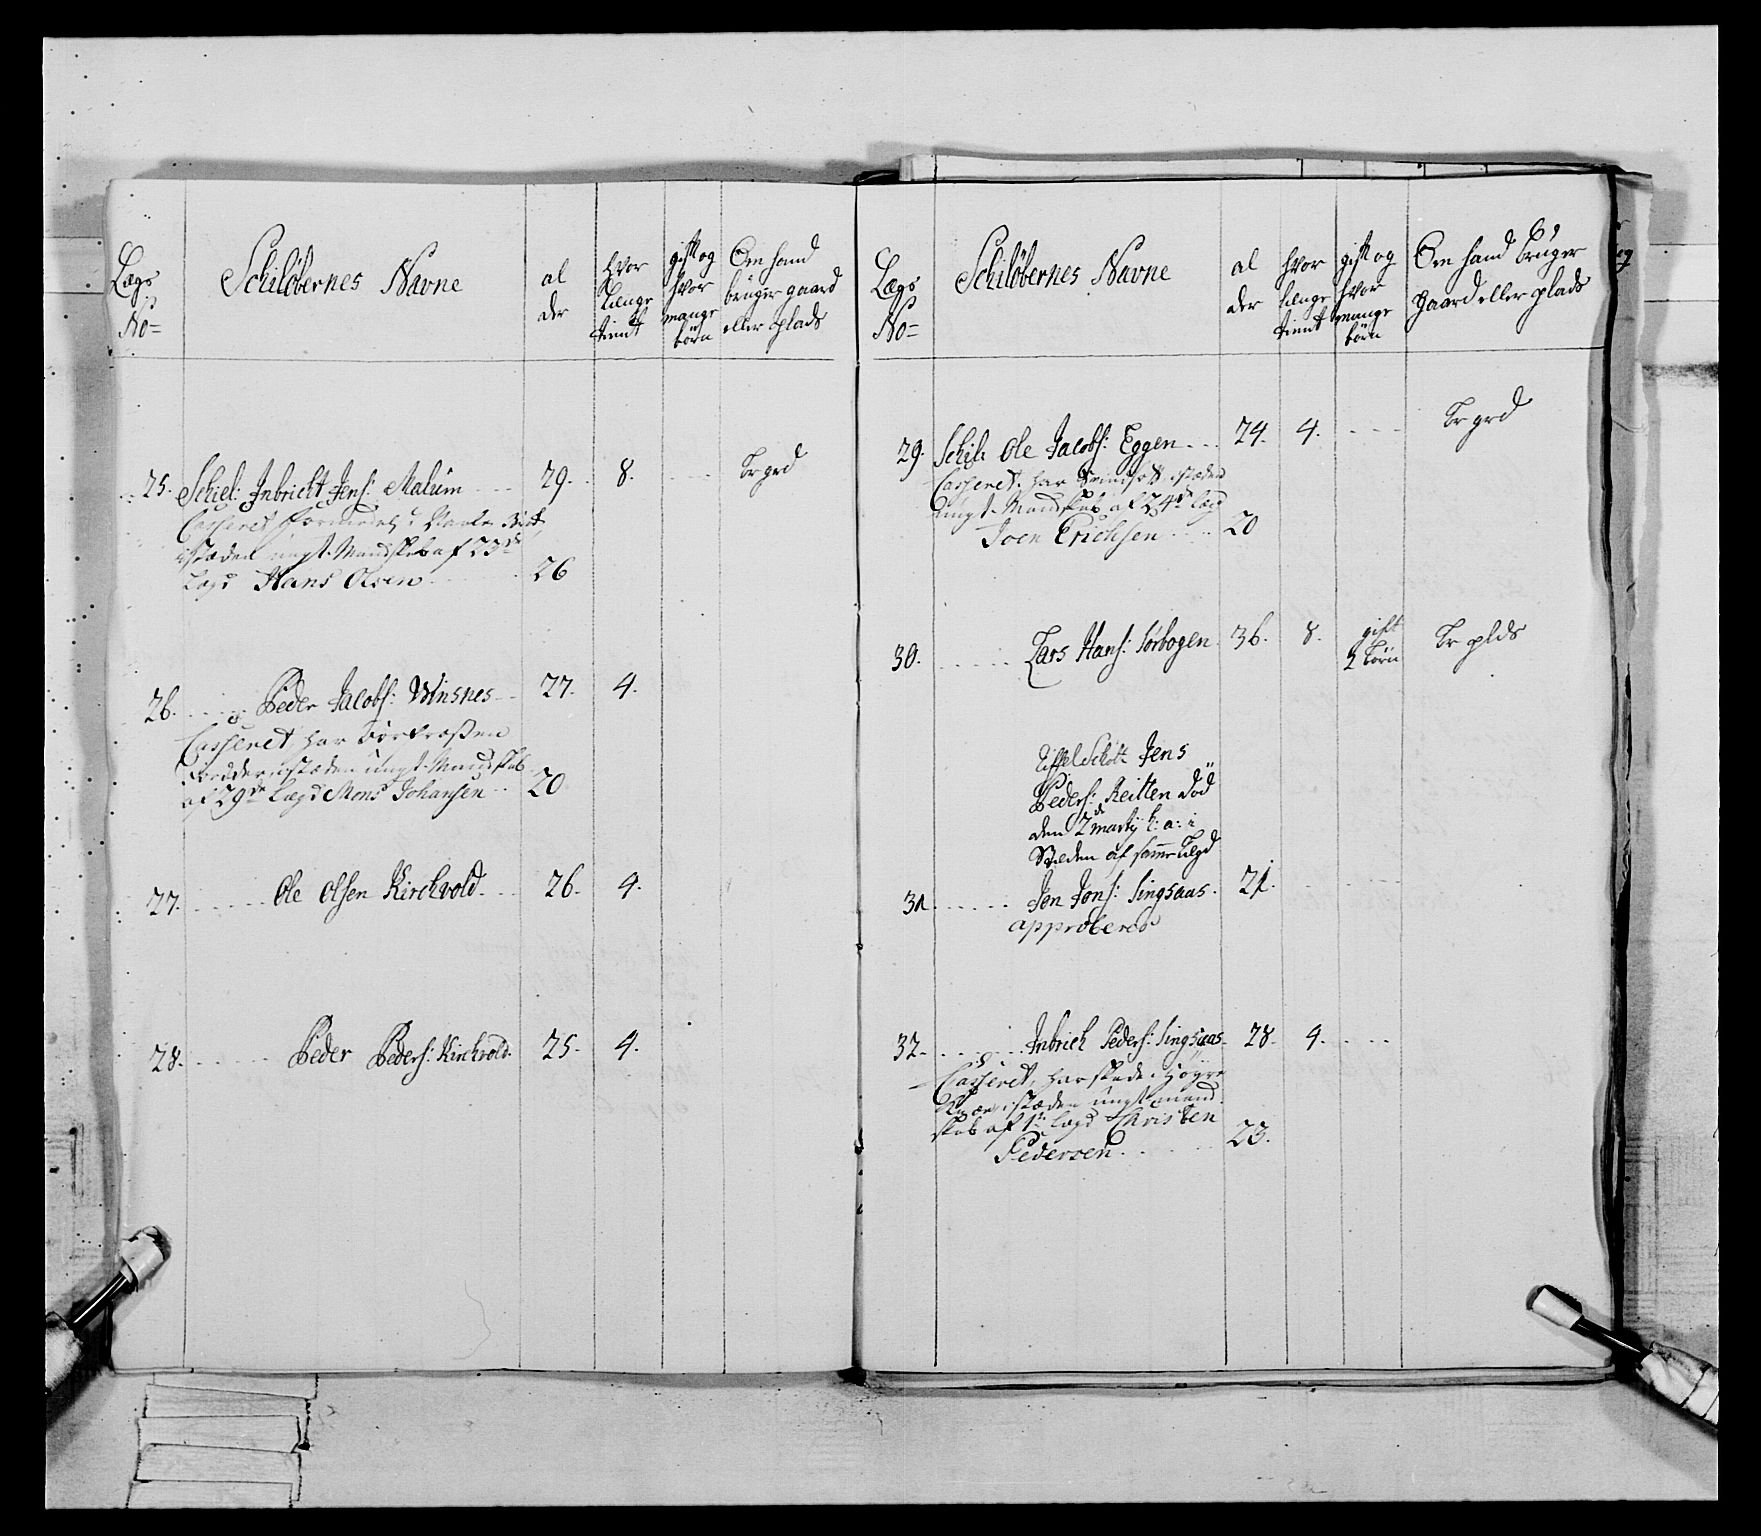 Lægs
No=
Schilöbernes Navne
al
der
hvor
længe
tient
gift og
hvor
mange
börn
Om hand
brüger gaard
eller plads
25. Schiel: Inbricht Jens: Malüm 29. 8. br grd
Casseret
istæden ungt Mandskab af 23de
Lægd Hans Olsen 26
26. Peder Jacobs: Winsnes 27. 4.
Casseret har
istæden ungt Mandskab
af 29de Lægd Mons Johansen 20
27. Ole Olsen Kirchvold 26. 4.
28. Peder Peders: Kirchvold. 25. 4.
Lægs
No=
Schilöbernes Navne
al
der
hvor
længe
tient
gift og
hvor
mange
börn
Om hand brüger
gaard eller plads
29. Schil: Ole Jacobs: Eggen 24. 4. br grd
Casseret, har istæden
ungt Mandskab af 24de Lægd
Joen Erichsen 20
30. Lars Hans: Sörbogen 36. 8. gift
2 börn br plds
Riffel Schött Jens
Peders: Reitten död
den 2de martij h: a: i
Stæden af samme Lægd
31. Jon Jons: Singsaas. 21.
approberes
32. Inbrich Peders: Singsaas 28. 4.
Casseret, har skade i Högre
Knæe, istæden ungt mand
skab af 1te Lægd Christen
Pedersen 23.